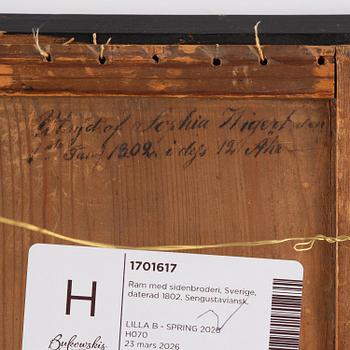 Utsyd af Sophia Wigert den
1802. i dess 12 Åhr
H
Bukowskis
1701617
Ram med sidenbroderi, Sverige,
daterad 1802, Sengustaviansk.
LILLA B - SPRING 2026
H070
23 mars 2026